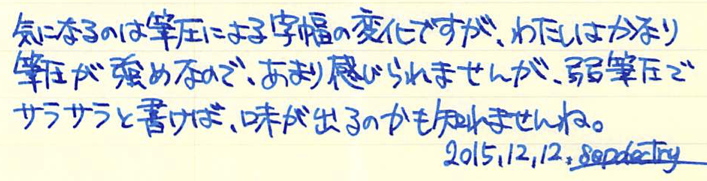 気になるのは筆圧による字幅の変化ですが、わたしはかなり
筆圧が強めなので、あまり感じられませんが、弱筆圧で
サラサラと書けば、味が出るのかも知れませんね。
2015,12,12.